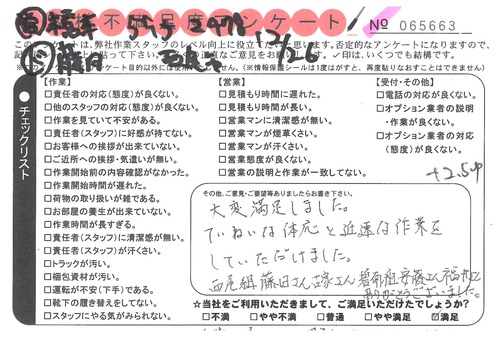 不満足度アンケート
№ 065663
12/26
チェックリスト
【作業】
□責任者の対応(態度)が良くない。
□他のスタッフの対応(態度)が良くない。
□作業を見ていて不安がある。
□責任者(スタッフ)に好感が持てない。
□お客様への挨拶が出来ていない。
□ご近所への挨拶・気遣いが無い。
□作業開始前の内容確認がなかった。
□作業開始時間が遅れた。
□荷物の取り扱いが雑である。
□お部屋の養生が出来ていない。
□作業時間が長すぎる。
□責任者(スタッフ)に清潔感が無い。
□責任者(スタッフ)が汗くさい。
□トラックが汚い。
□梱包資材が汚い。
□運転が不安(下手)である。
□靴下の履き替えをしてない。
□スタッフにやる気がみられない。
【営業】
□見積もり時間に遅れた。
□見積もり時間が長い。
□営業マンに清潔感が無い。
□営業マンが煙草くさい。
□営業マンが汗くさい。
□営業態度が良くない。
□営業の説明と作業が一致してない。
【受付・その他】
□電話の対応が良くない。
□オプション業者の説明・作業が良くない。
□オプション業者の対応(態度)が良くない。
+2.5p
その他、ご意見・ご要望等ありましたらお書き下さい。
大変満足しました。
ていねいな体応と迅速な作業を
していただけました。
西尾組藤田さん 碧南組安藤さん
ありがとうございました。
☆当社をご利用いただきまして、ご満足いただけたでしょうか?
□不満 □やや不満 □普通 □やや満足 ☑満足